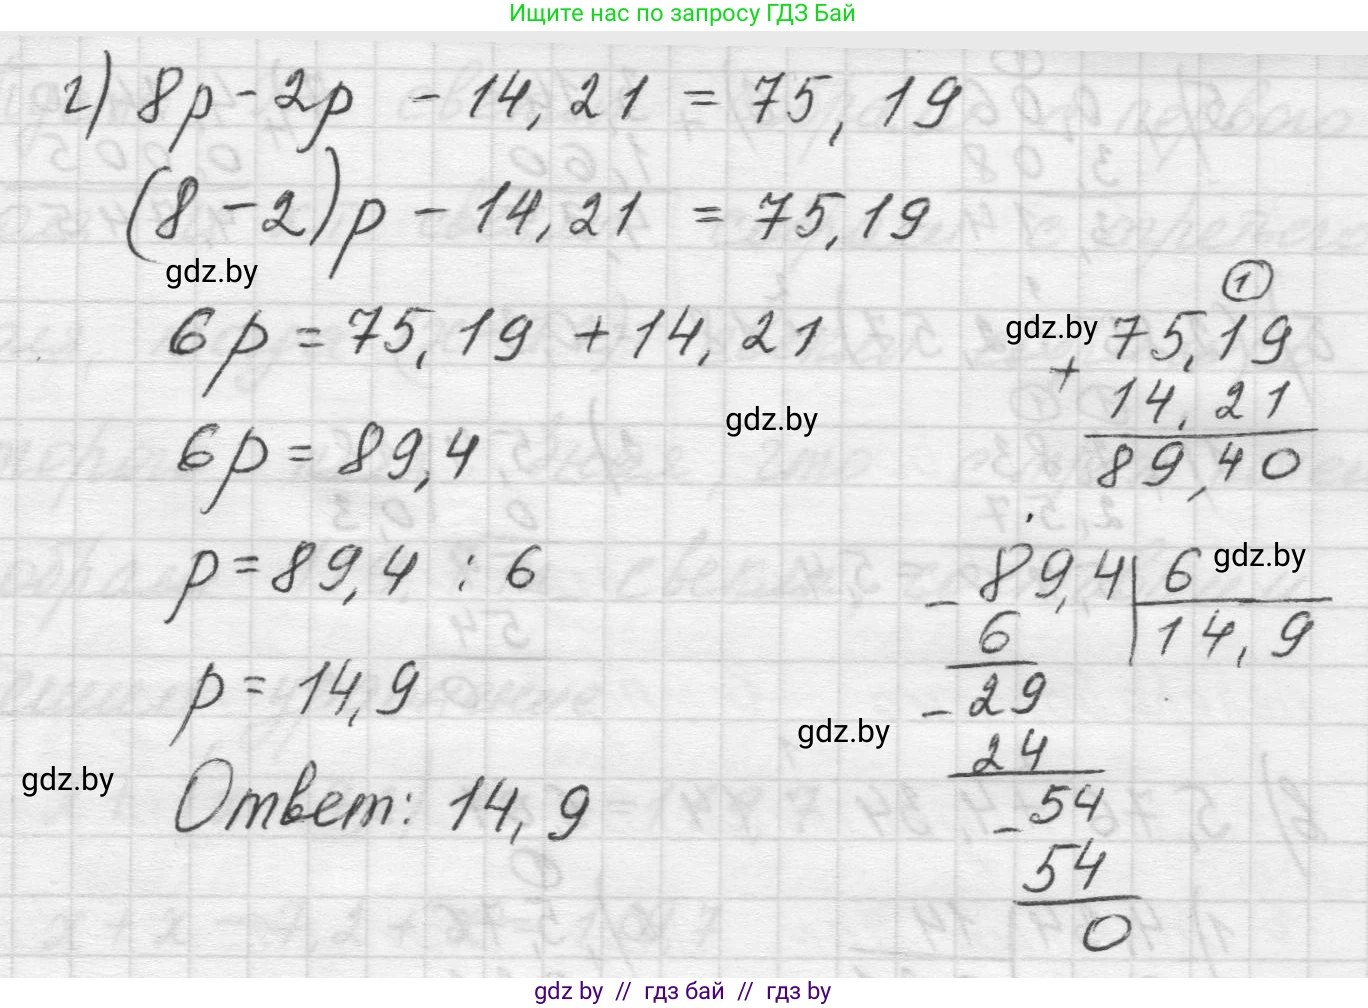 Ищите нас по запросу ГДЗ Бай
г) 8p - 2p - 14,21 = 75,19
(8 - 2)p - 14,21 = 75,19
gdz.by
6p = 75,19 + 14,21
6p = 89,4
p = 89,4 : 6
p = 14,9
Ответ: 14,9
gdz.by
gdz.by
gdz.by
1
gdz.by
75,19
+
14,21
89,40
89,4 | 6
gdz.by
- 6
14,9
- 29
24
- 54
54
0
gdz by // гдз бай // гдз by